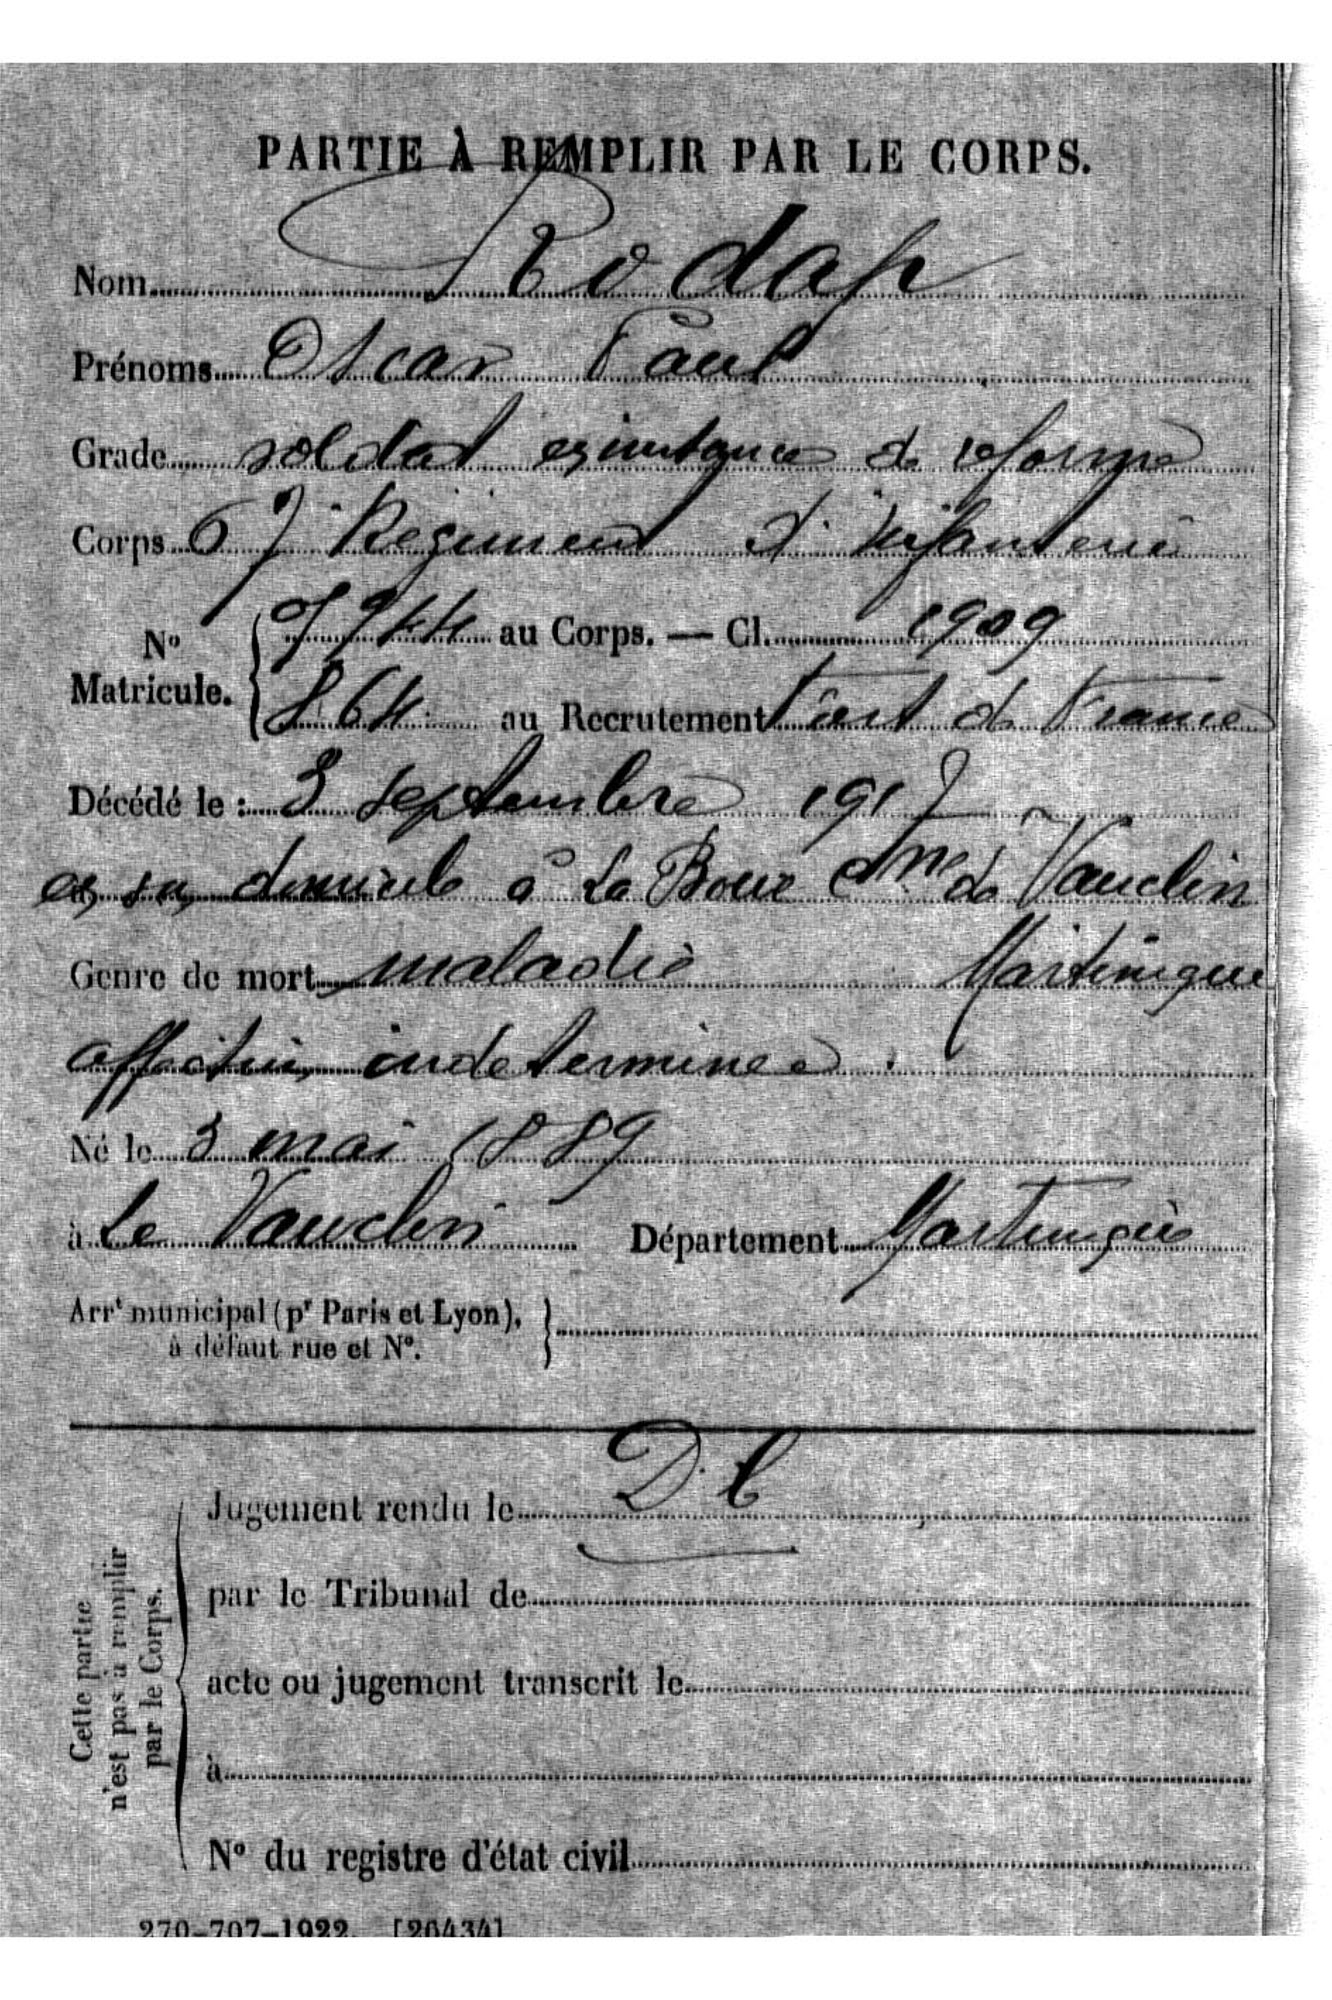 PARTIE À REMPLIR PAR LE CORPS.
Nom Rodap
Prénoms Oscar Paul
Grade soldat en instance de reforme
Corps 67 Regiment d'infanterie
No Matricule. 7944 au Corps. — Cl. 1909
864 au Recrutement Fort de France
Décédé le : 3 septembre 1917
en son domicile à La Boue Cne du Vauclin
Genre de mort maladie Martinique
affection indeterminee.
Né le 3 mai 1889
à Le Vauclin Département Martinique
Arrt municipal (pr Paris et Lyon),
à défaut rue et No.
D. C
Jugement rendu le
par le Tribunal de
acte ou jugement transcrit le
à
No du registre d'état civil
Cette partie
n'est pas à remplir
par le Corps.
270-707-1922. [26434]